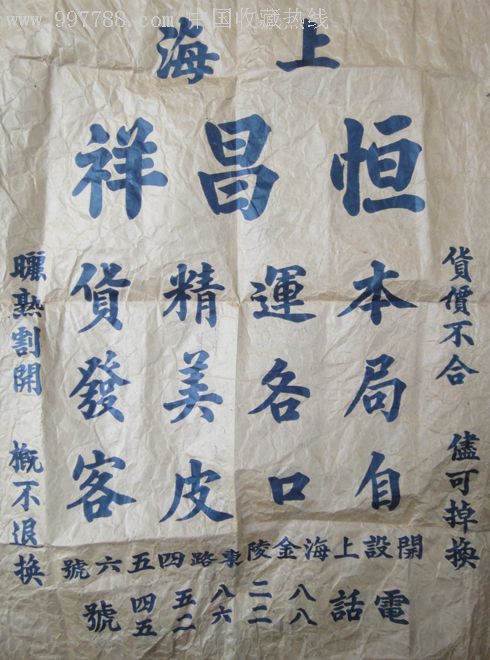 www.997788.com 中国收藏热线
上海
恒昌祥
貨價不合 儘可掉換
本局自
運各口
精美皮
貨發客
曬熟割開 概不退換
開設上海金陵東路四五六號
電話 八二八五四 八二六二五 號